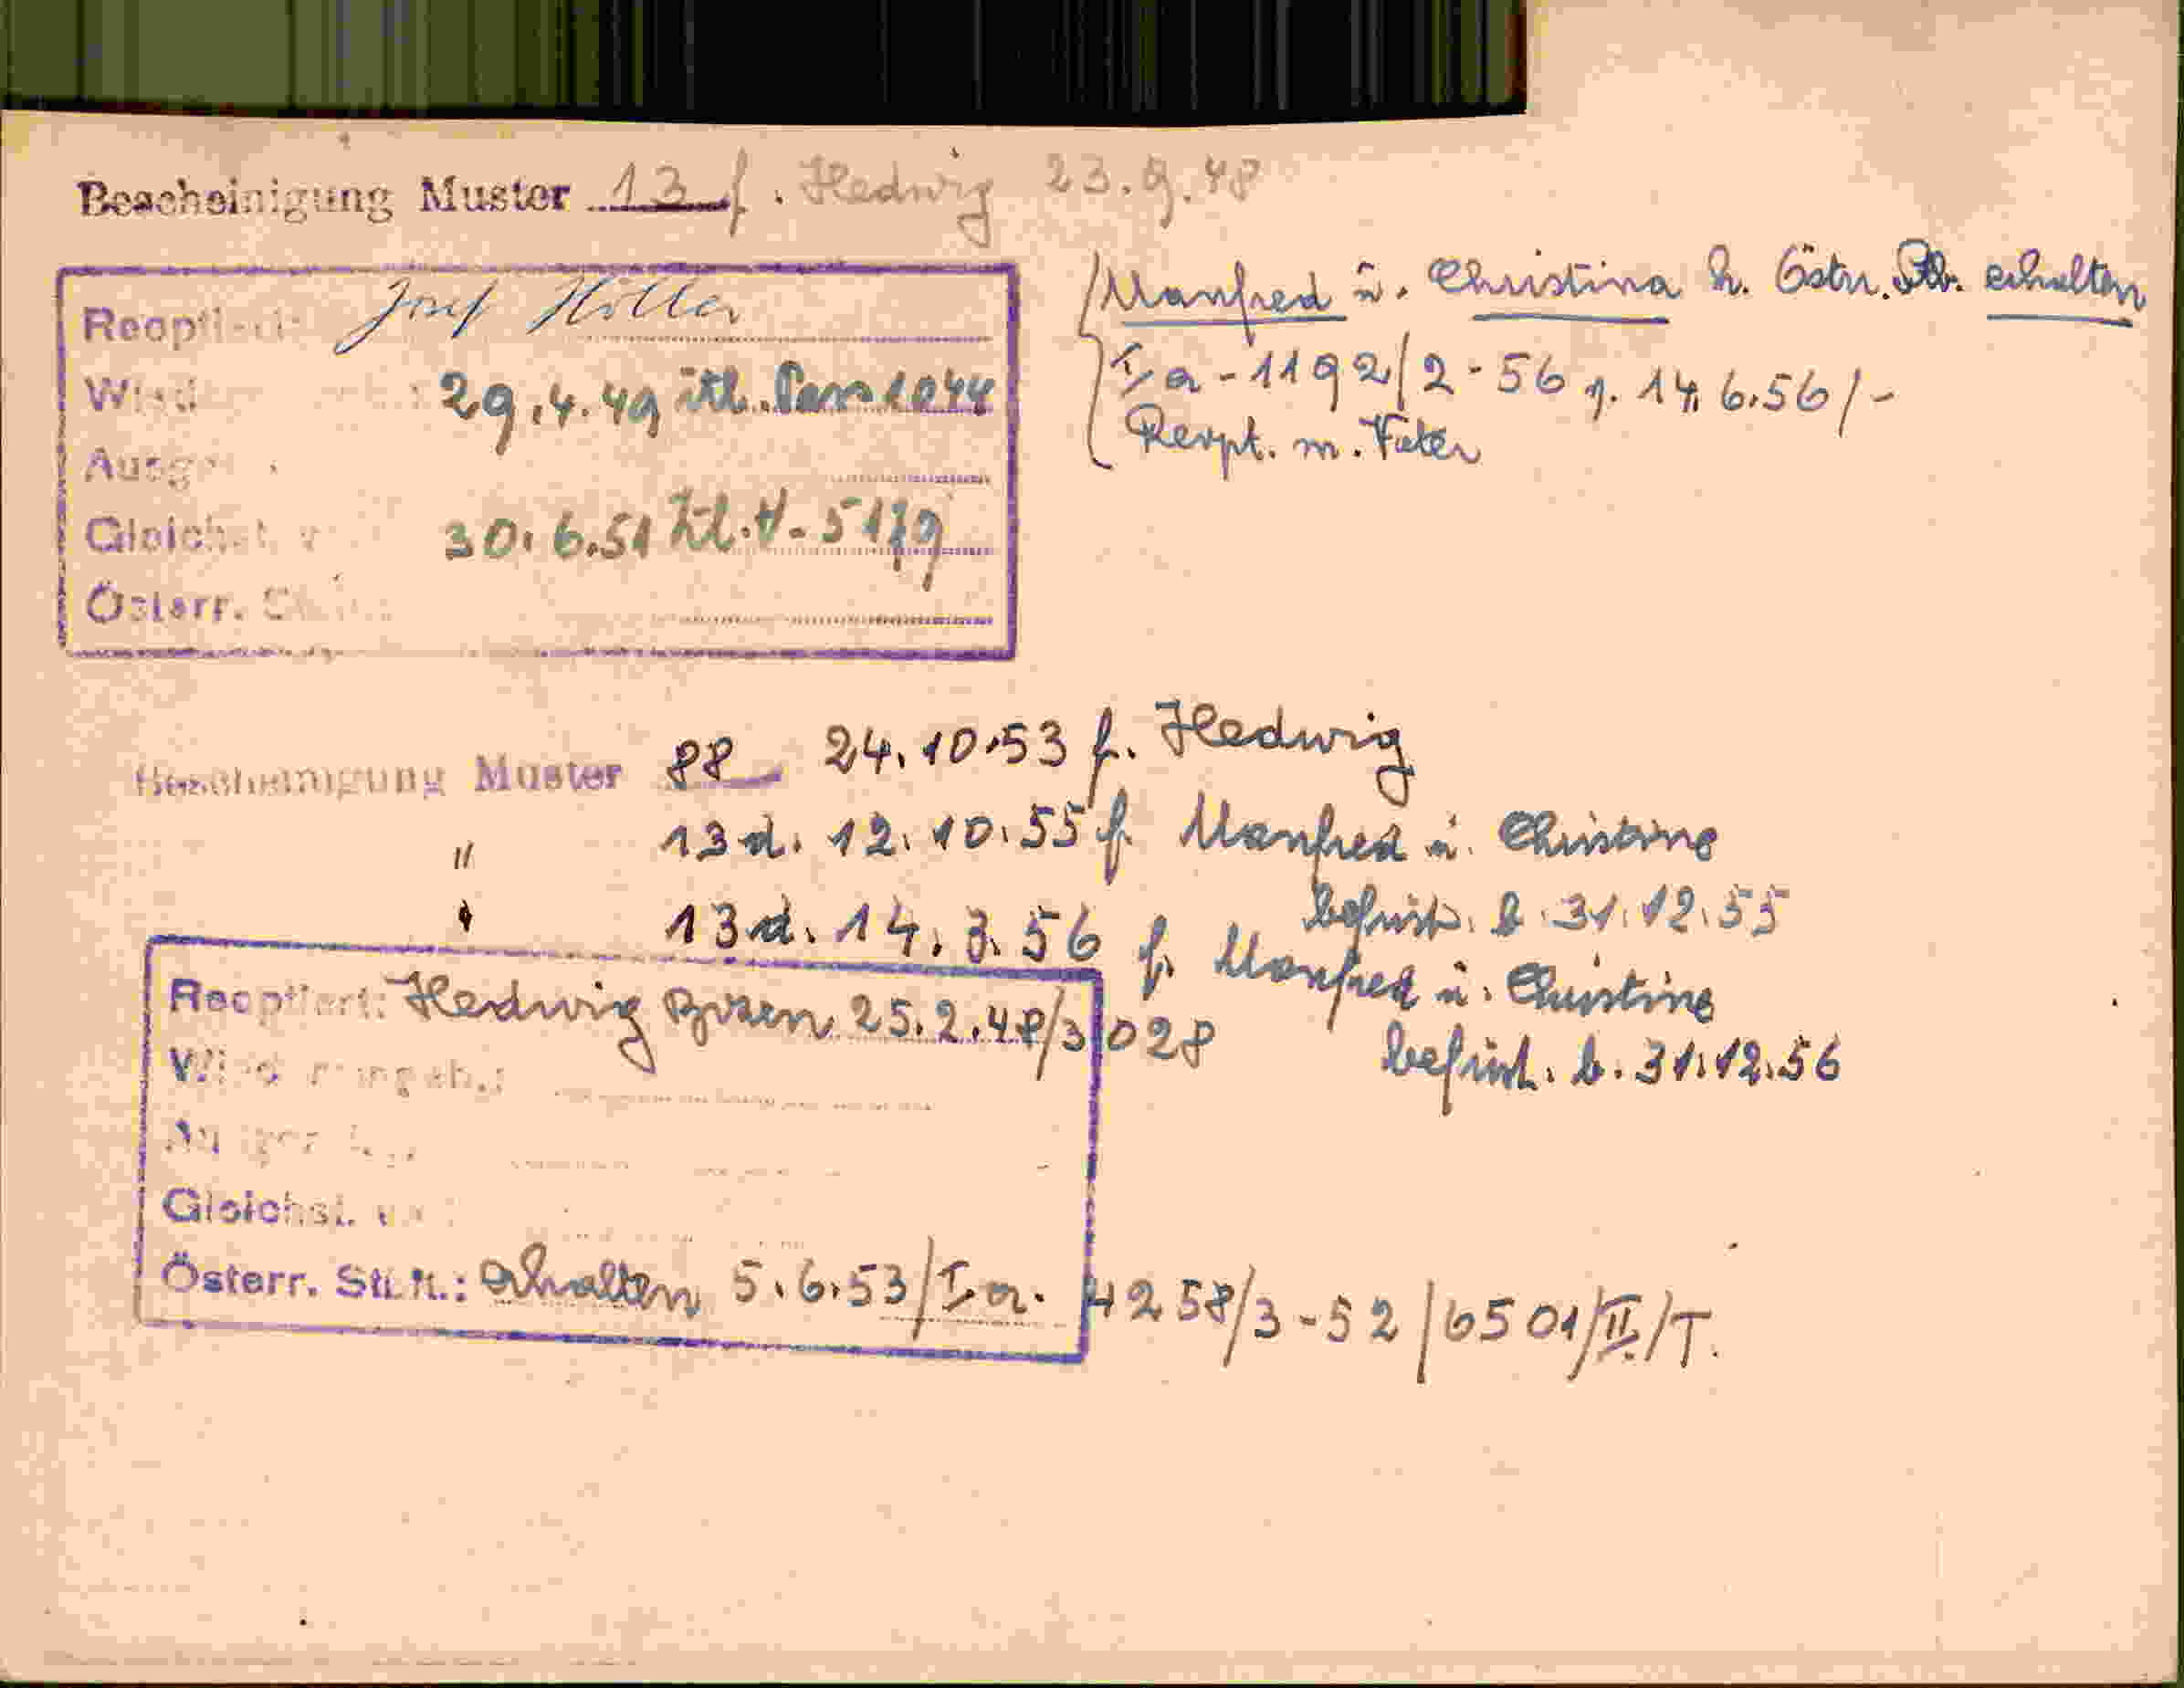 Bescheinigung Muster 13 f. Hedwig 23.9.48
Reoptiert: Josef Holler
Wied 29.4.49 itl. Pass 1044
Ausge
Gleichst 30.6.51 Zl. V-
Österr.
Manfred u. Christina h. Östr. Stb. erhalten
I/a-1192/2-56 v. 14.6.56/-
Reopt. m. Vater
Bescheinigung Muster 88 24.10.53 f. Hedwig
" 13d. 12.10.55 f. Manfred u. Christine
befrist. b. 31.12.55
13d. 14.3.56 f. Manfred u. Christine
befrist. b. 31.12.56
Reoptiert: Hedwig Bozen 25.2.48/31028
Wied reingeb.:
Gleichst.
Österr. St.B.: erhalten 5.6.53/I.a. 4258/3-52/6501/II/T.